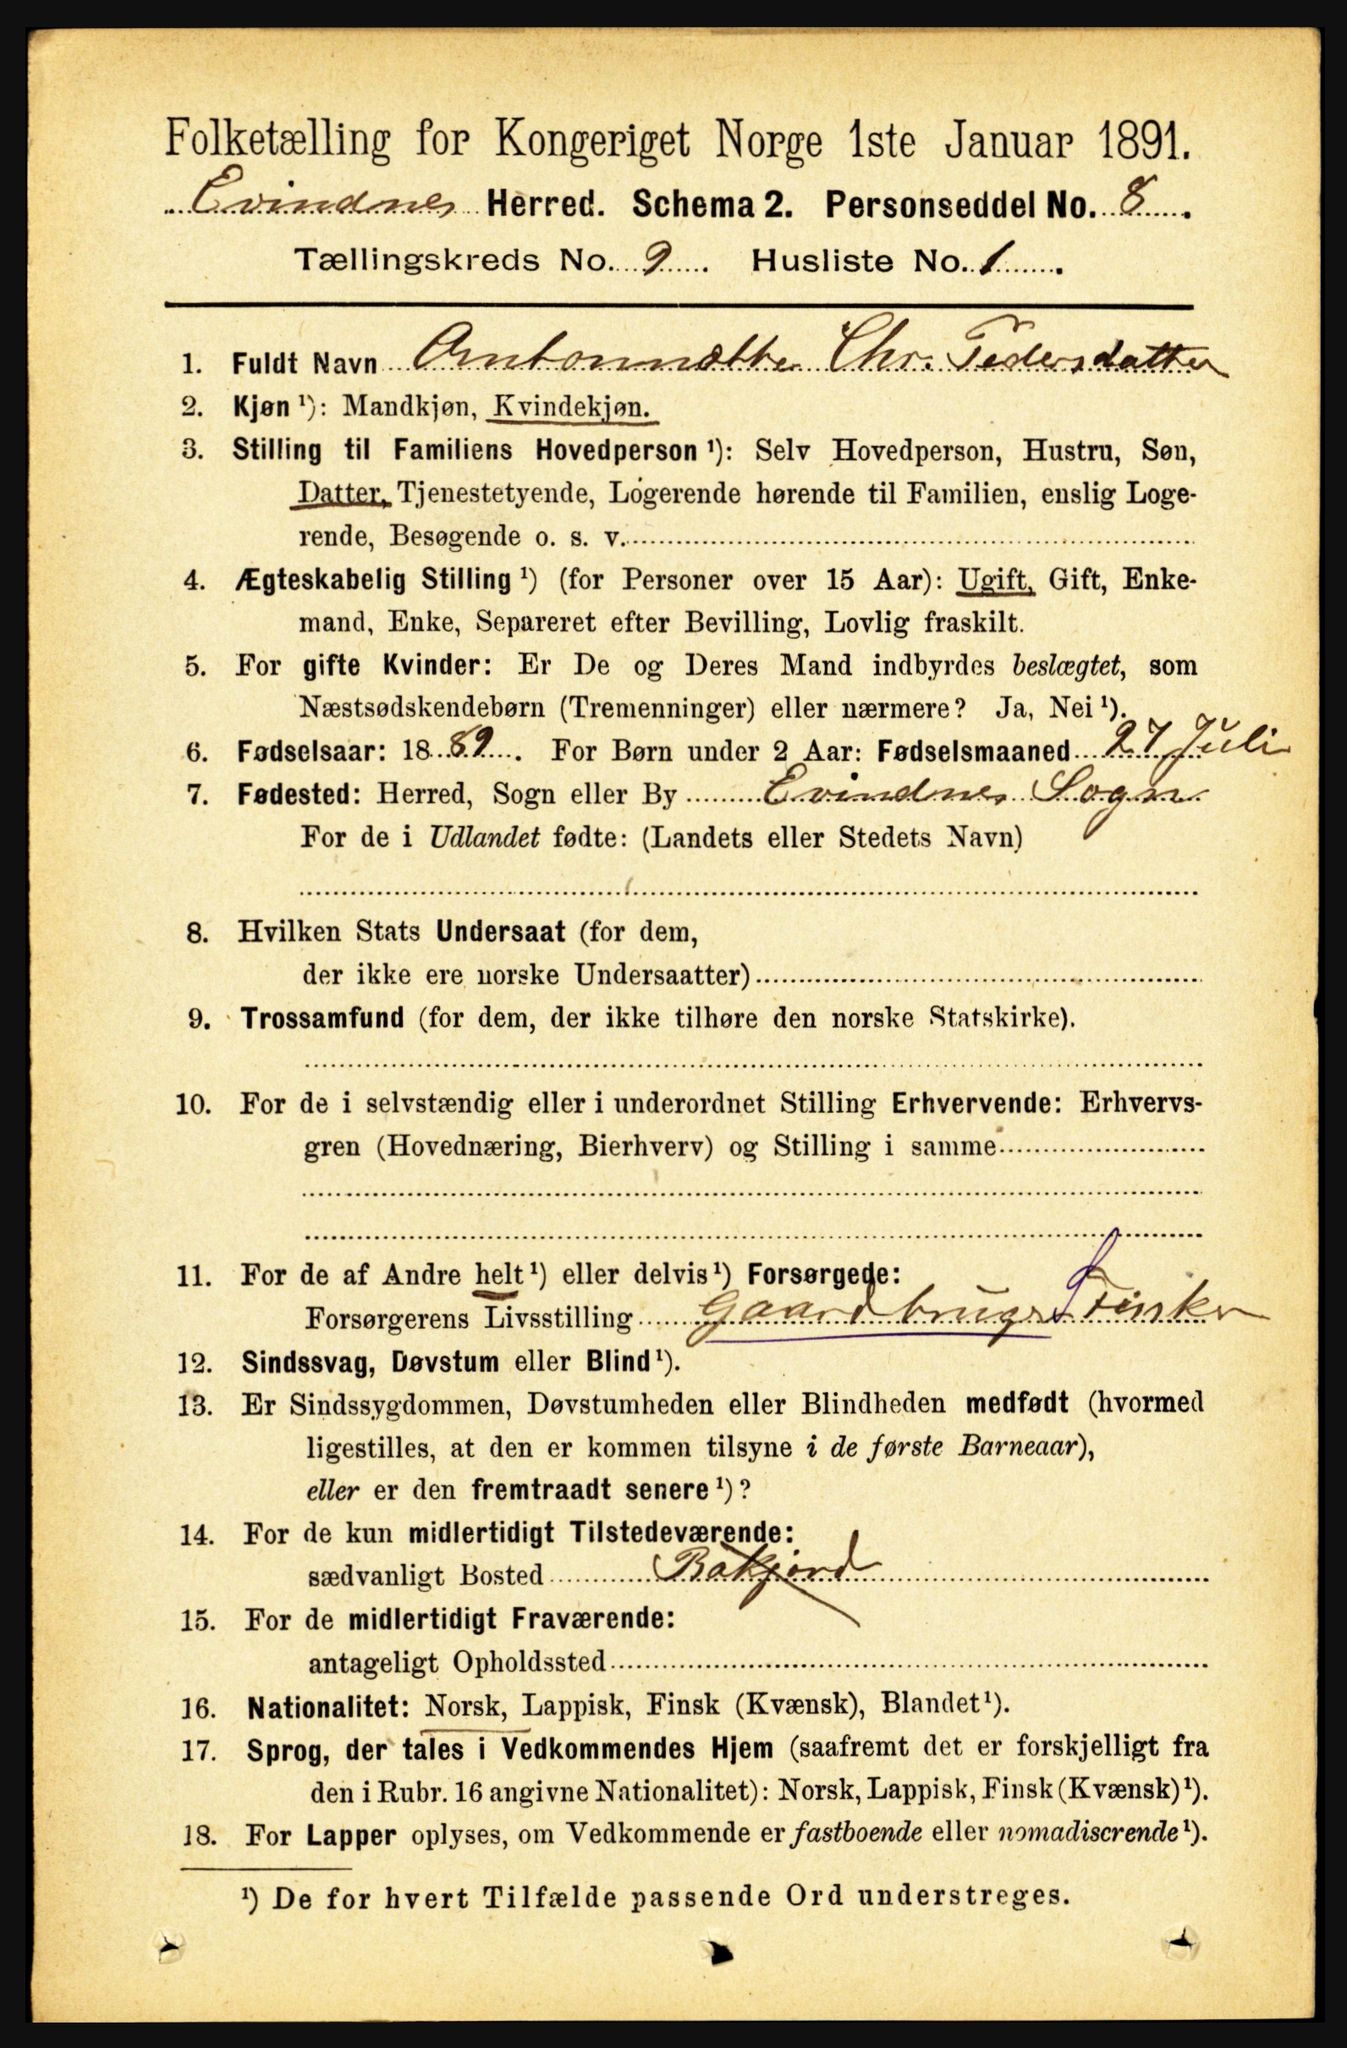 Folketælling for Kongeriget Norge 1ste Januar 1891.
Evindnes Herred. Schema 2. Personseddel No. 8.
Tællingskreds No. 9. Husliste No. 1.
1. Fuldt Navn Antonnette Chr. Pedersdatter
2. Kjøn ¹): Mandkjøn, Kvindekjøn.
3. Stilling til Familiens Hovedperson ¹): Selv Hovedperson, Hustru, Søn,
Datter, Tjenestetyende, Logerende hørende til Familien, enslig Loge-
rende, Besøgende o. s. v.
4. Ægteskabelig Stilling ¹) (for Personer over 15 Aar): Ugift, Gift, Enke-
mand, Enke, Separeret efter Bevilling, Lovlig fraskilt.
5. For gifte Kvinder: Er De og Deres Mand indbyrdes beslægtet, som
Næstsødskendebørn (Tremenninger) eller nærmere? Ja, Nei ¹).
6. Fødselsaar: 1889. For Børn under 2 Aar: Fødselsmaaned 27 Juli
7. Fødested: Herred, Sogn eller By Evindnes Sogn
For de i Udlandet fødte: (Landets eller Stedets Navn)
8. Hvilken Stats Undersaat (for dem,
der ikke ere norske Undersaatter)
9. Trossamfund (for dem, der ikke tilhøre den norske Statskirke).
10. For de i selvstændig eller i underordnet Stilling Erhvervende: Erhvervs-
gren (Hovednæring, Bierhverv) og Stilling i samme
11. For de af Andre helt ¹) eller delvis ¹) Forsørgede:
Forsørgerens Livsstilling Gaardbruger Fisker
12. Sindssvag, Døvstum eller Blind ¹).
13. Er Sindssygdommen, Døvstumheden eller Blindheden medfødt (hvormed
ligestilles, at den er kommen tilsyne i de første Barneaar),
eller er den fremtraadt senere ¹)?
14. For de kun midlertidigt Tilstedeværende:
sædvanligt Bosted Bakjord
15. For de midlertidigt Fraværende:
antageligt Opholdssted
16. Nationalitet: Norsk, Lappisk, Finsk (Kvænsk), Blandet ¹).
17. Sprog, der tales i Vedkommendes Hjem (saafremt det er forskjelligt fra
den i Rubr. 16 angivne Nationalitet): Norsk, Lappisk, Finsk (Kvænsk) ¹).
18. For Lapper oplyses, om Vedkommende er fastboende eller nomadiserende ¹).
¹) De for hvert Tilfælde passende Ord understreges.